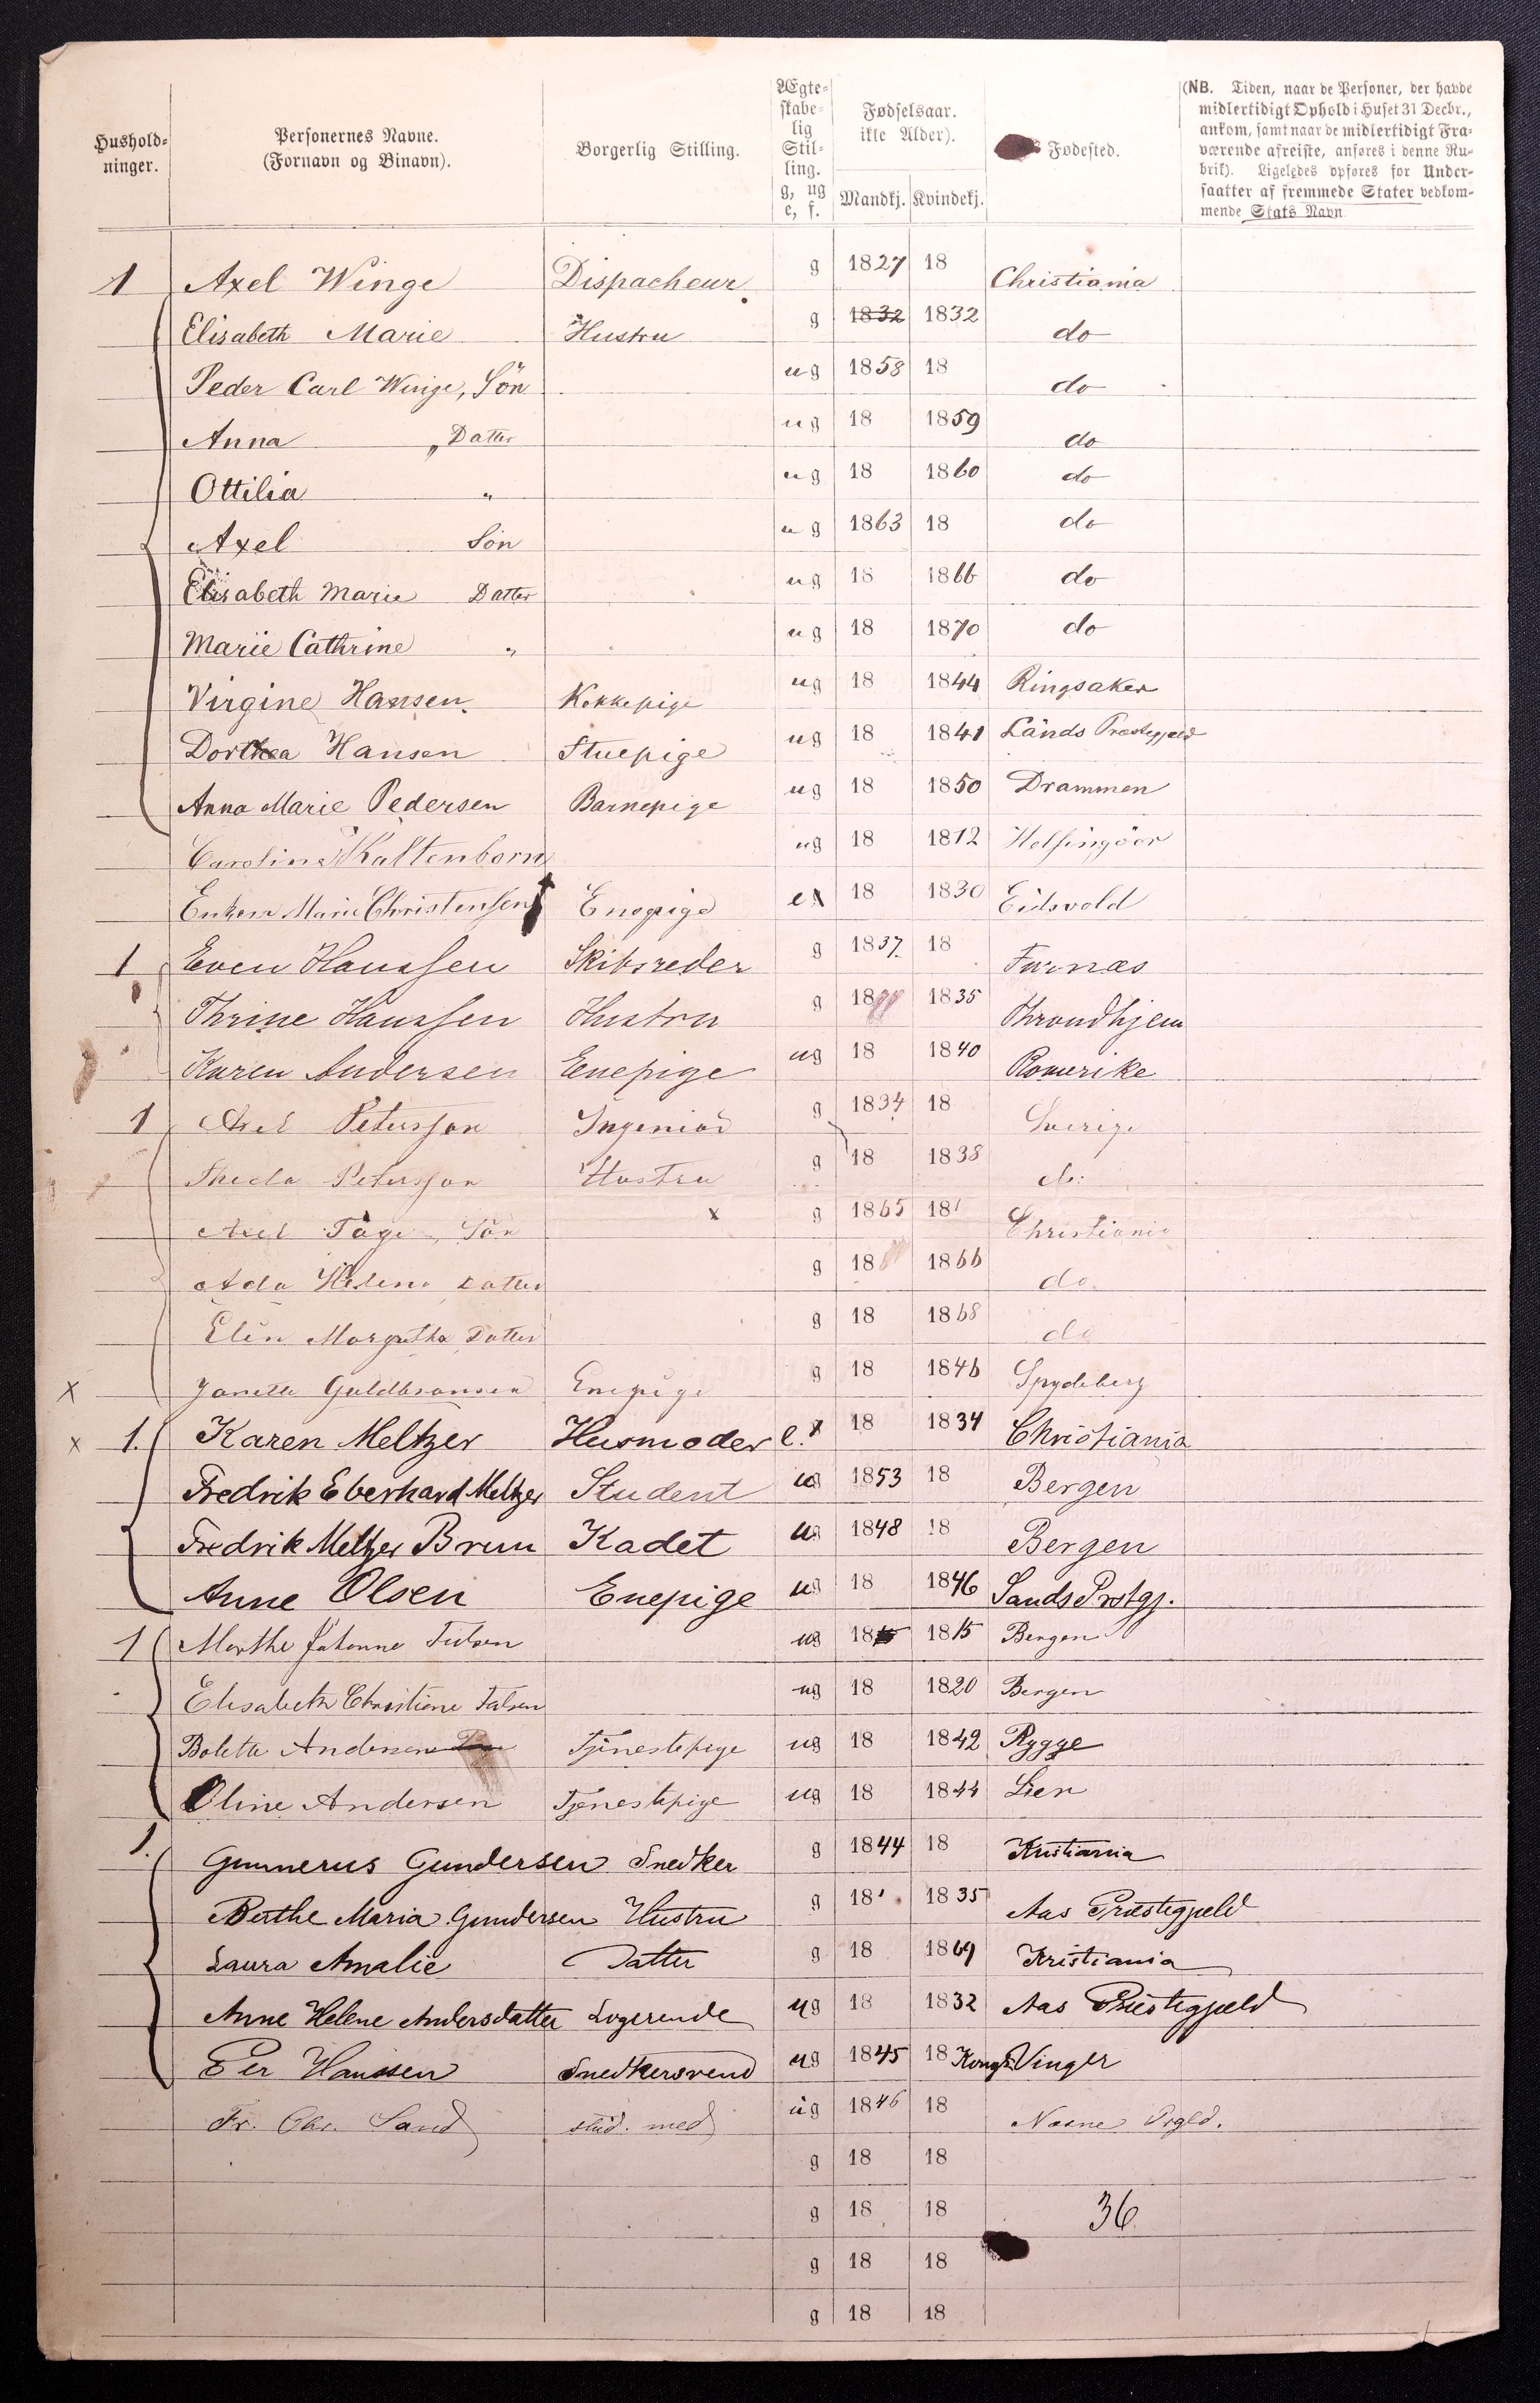 Hushold-
ninger.
Personernes Navne.
(Fornavn og Binavn).
Borgerlig Stilling.
Ægte-
skabe-
lig
Stil-
ling.
g, ug
e, f.
Fødselsaar.
ikke Alder).
Mandkj. Kvindekj.
Fødested.
(NB. Tiden, naar de Personer, der havde
midlertidigt Ophold i Huset 31 Decbr.,
ankom, samt naar de midlertidigt Fra-
værende afreiste, anføres i denne Ru-
brik). Ligeledes opføres for Under-
saatter af fremmede Stater vedkom-
mende Stats Navn
1 Axel Winge Dispacheur. g 1827 18 Christiania
Elisabeth Marie Hustru g 1832 1832 do
Peder Carl Winge, Sön ug 1858 18 do
Anna „ Datter ug 18 1859 do
Ottilia „ ug 18 1860 do
Axel Sön ug 1863 18 do
Elisabeth Marie Datter ug 18 1866 do
Marie Cathrine „ ug 18 1870 do
Virgine Hansen. Kokkepige ug 18 1844 Ringsaker
Dorthea Hansen Stuepige ug 18 1841 Lands Præstegjeld
Anna Marie Pedersen Barnepige ug 18 1850 Drammen
Caroline Kaltenborn ug 18 1812 Helsingöer
Enken Marie Christensen Enepige e 18 1830 Eidsvold
1 Even Hanssen Skibsreder g 1837. 18 Furnæs
Thrine Hanssen Hustru g 18 1835 Throndhjem
Karen Andersen Enepige ug 18 1840 Romerike
1 Axel Petersson Ingeniör g 1834 18 Sverige
Theda Petersson Hustru g 18 1838 do:
Axel Tage, Sön x g 1865 18 Christiania
Ada Helena Datter g 18 1866 do
Elin Margretha Datter g 18 1868 do
x Janette Guldbransen Enepige g 18 1846 Spydeberg
x 1. Karen Meltzer Husmoder e. 18 1834 Christiania
Fredrik Eberhard Meltzer Student ug 1853 18 Bergen
Fredrik Meltzer Brun Kadet ug 1848 18 Bergen
Anne Olsen Enepige ug 18 1846 Sands Prstgj.
1 Marthe Johanne Falsen ug 18 1815 Bergen
Elisabeth Christiane Falsen ug 18 1820 Bergen
Bolette Andersen Tjenestepige ug 18 1842 Rygge
Oline Andersen Tjenestepige ug 18 1844 Lier
1. Gunnerus Gundersen Snedker g 1844 18 Kristiania
Berthe Maria Gundersen Hustru g 18 1835 Aas Præstegjeld
Laura Amalie Datter g 18 1869 Kristiania
Anne Helene Andersdatter Logerende ug 18 1832 Aas Præstegjeld
Per Hanssen Snedkersvend ug 1845 18 Kongs Vinger
Fr. Chr. Sand stud. med ug 1846 18 Næsne Prgld.
g 18 18
g 18 18 36
g 18 18
g 18 18